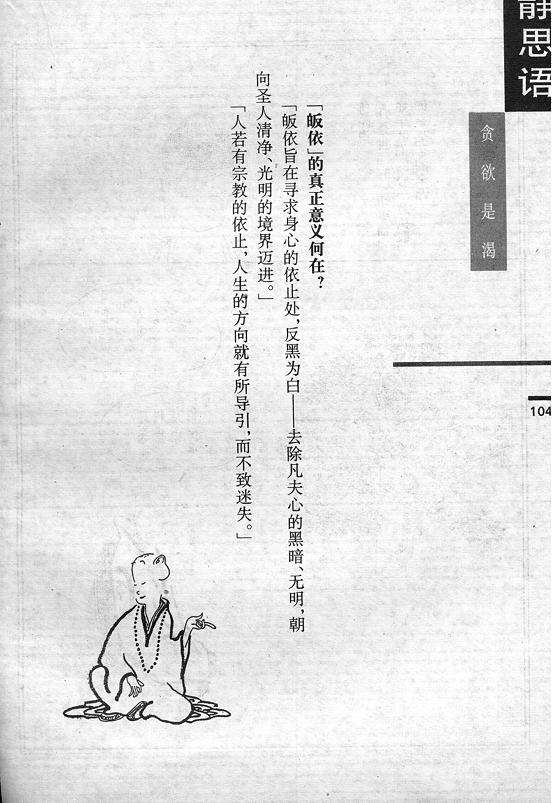 静思语
贪欲是渴
104
「皈依」的真正意义何在？
「皈依旨在寻求身心的依止处，反黑为白——去除凡夫心的黑暗、无明，朝
向圣人清净、光明的境界迈进。」
「人若有宗教的依止，人生的方向就有所导引，而不致迷失。」